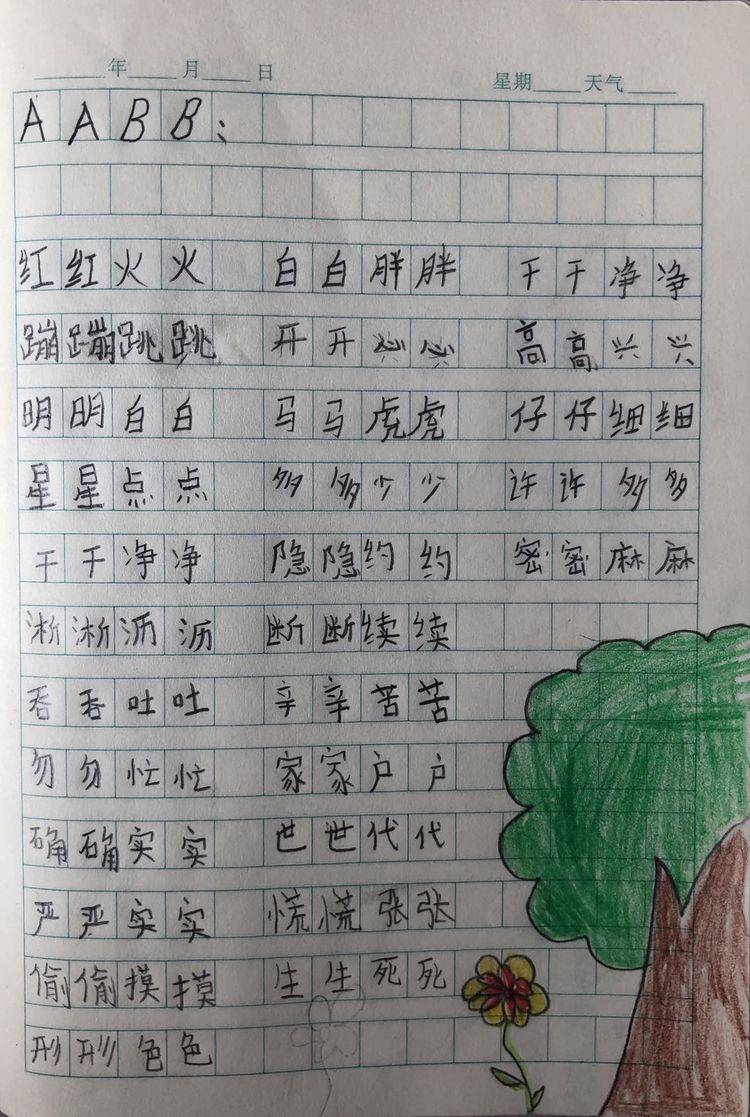 年 月 日 星期 天气
AABB:
红红火火 白白胖胖 干干净净
蹦蹦跳跳 开开心心 高高兴兴
明明白白 马马虎虎 仔仔细细
星星点点 多多少少 许许多多
干干净净 隐隐约约 密密麻麻
淅淅沥沥 断断续续
吞吞吐吐 辛辛苦苦
勿勿忙忙 家家户户
确确实实 世世代代
严严实实 慌慌张张
偷偷摸摸 生生死死
形形色色